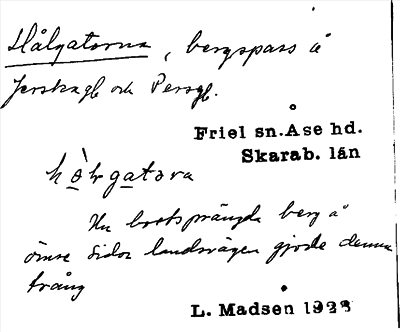 Hålgatorna, bergspass å
Jerskagb och Persgb.
Friel sn. Åse hd.
Skarab. län
hòlgatəra
Nu bortsprängda berg å
ömse sidor landsvägen gjorde denna
trång
L. Madsen 1928